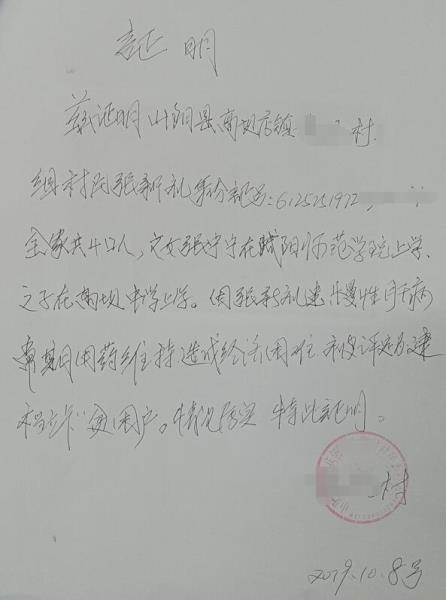 证明
兹证明山阳县高坝店镇 村
组村民张新礼身份证号:612525197
全家共4口人,次女张宁宁在咸阳师范学院上学、
之子在高坝中学上学。因张新礼患慢性肝病
常期用药维持造成经济困难 被评为建
档立卡"贫困户。情况属实 特此证明。
村
2019.10.8号